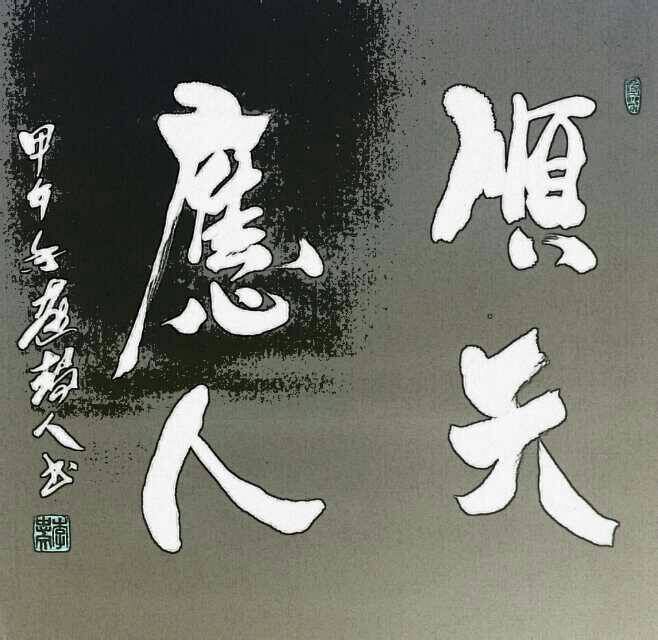 順天
應人
甲午年 人书